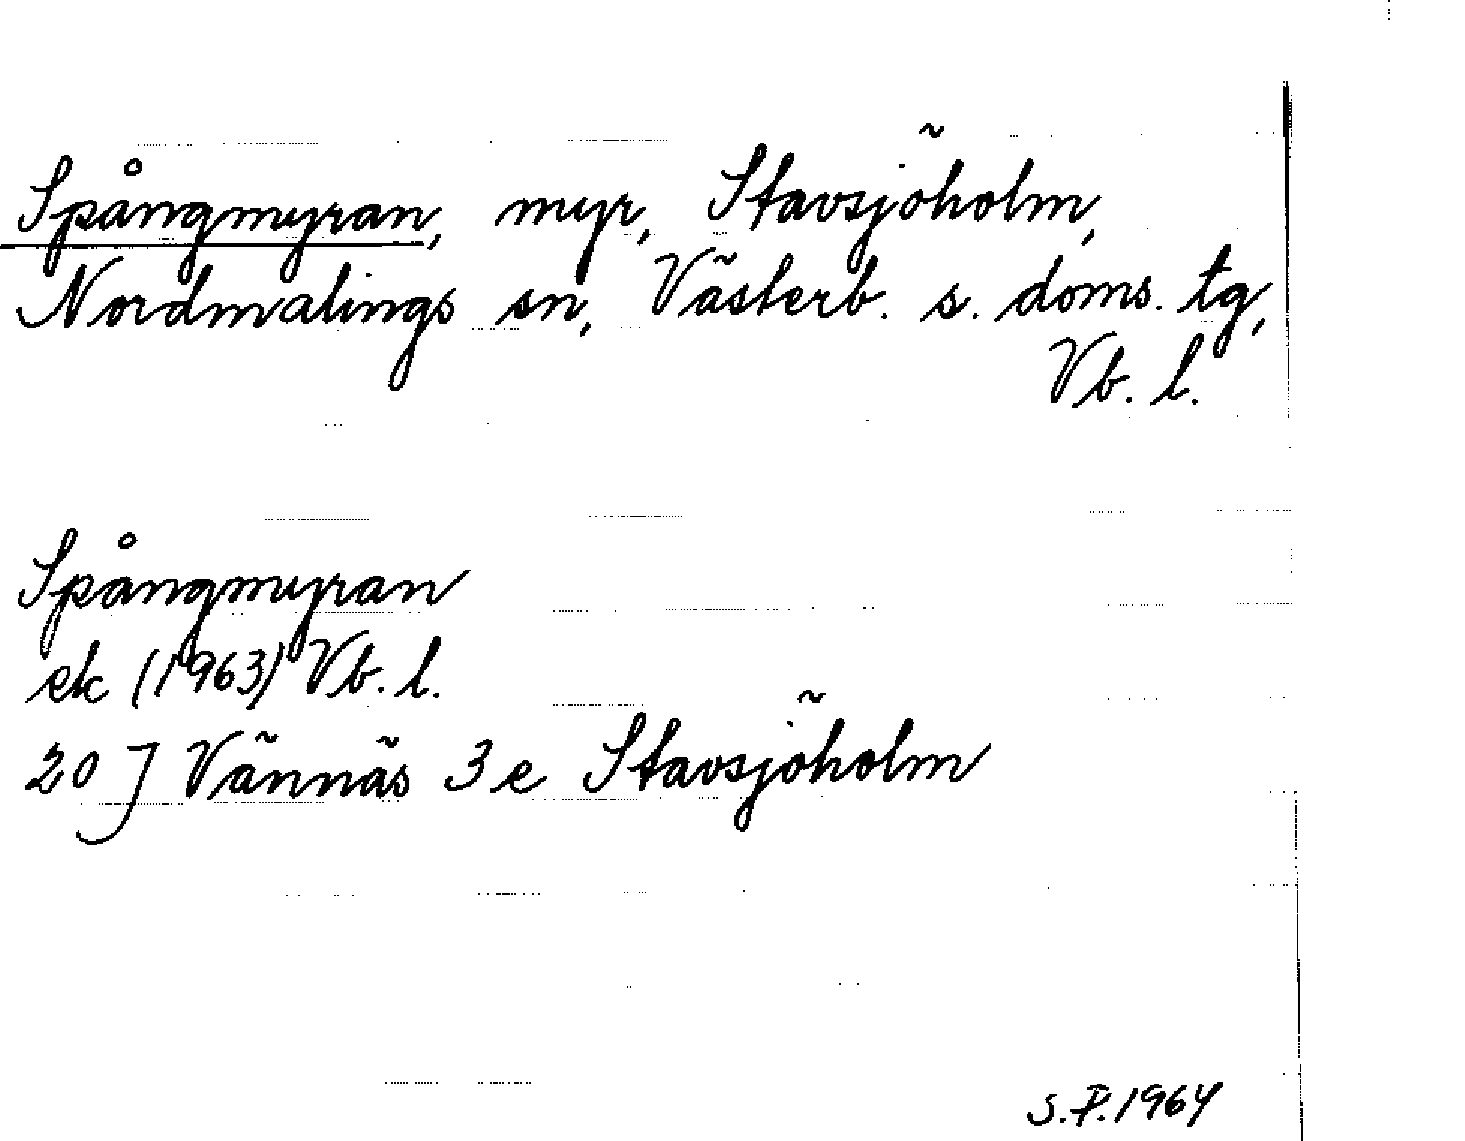 Spångmyran, myr, Stavsjöholm,
Nordmalings sn, Västerb. s. doms. tg,
Vb. l.
Spångmyran
ek (1963) Vb. l.
20 J Vännäs 3 e Stavsjöholm
S.P. 1964